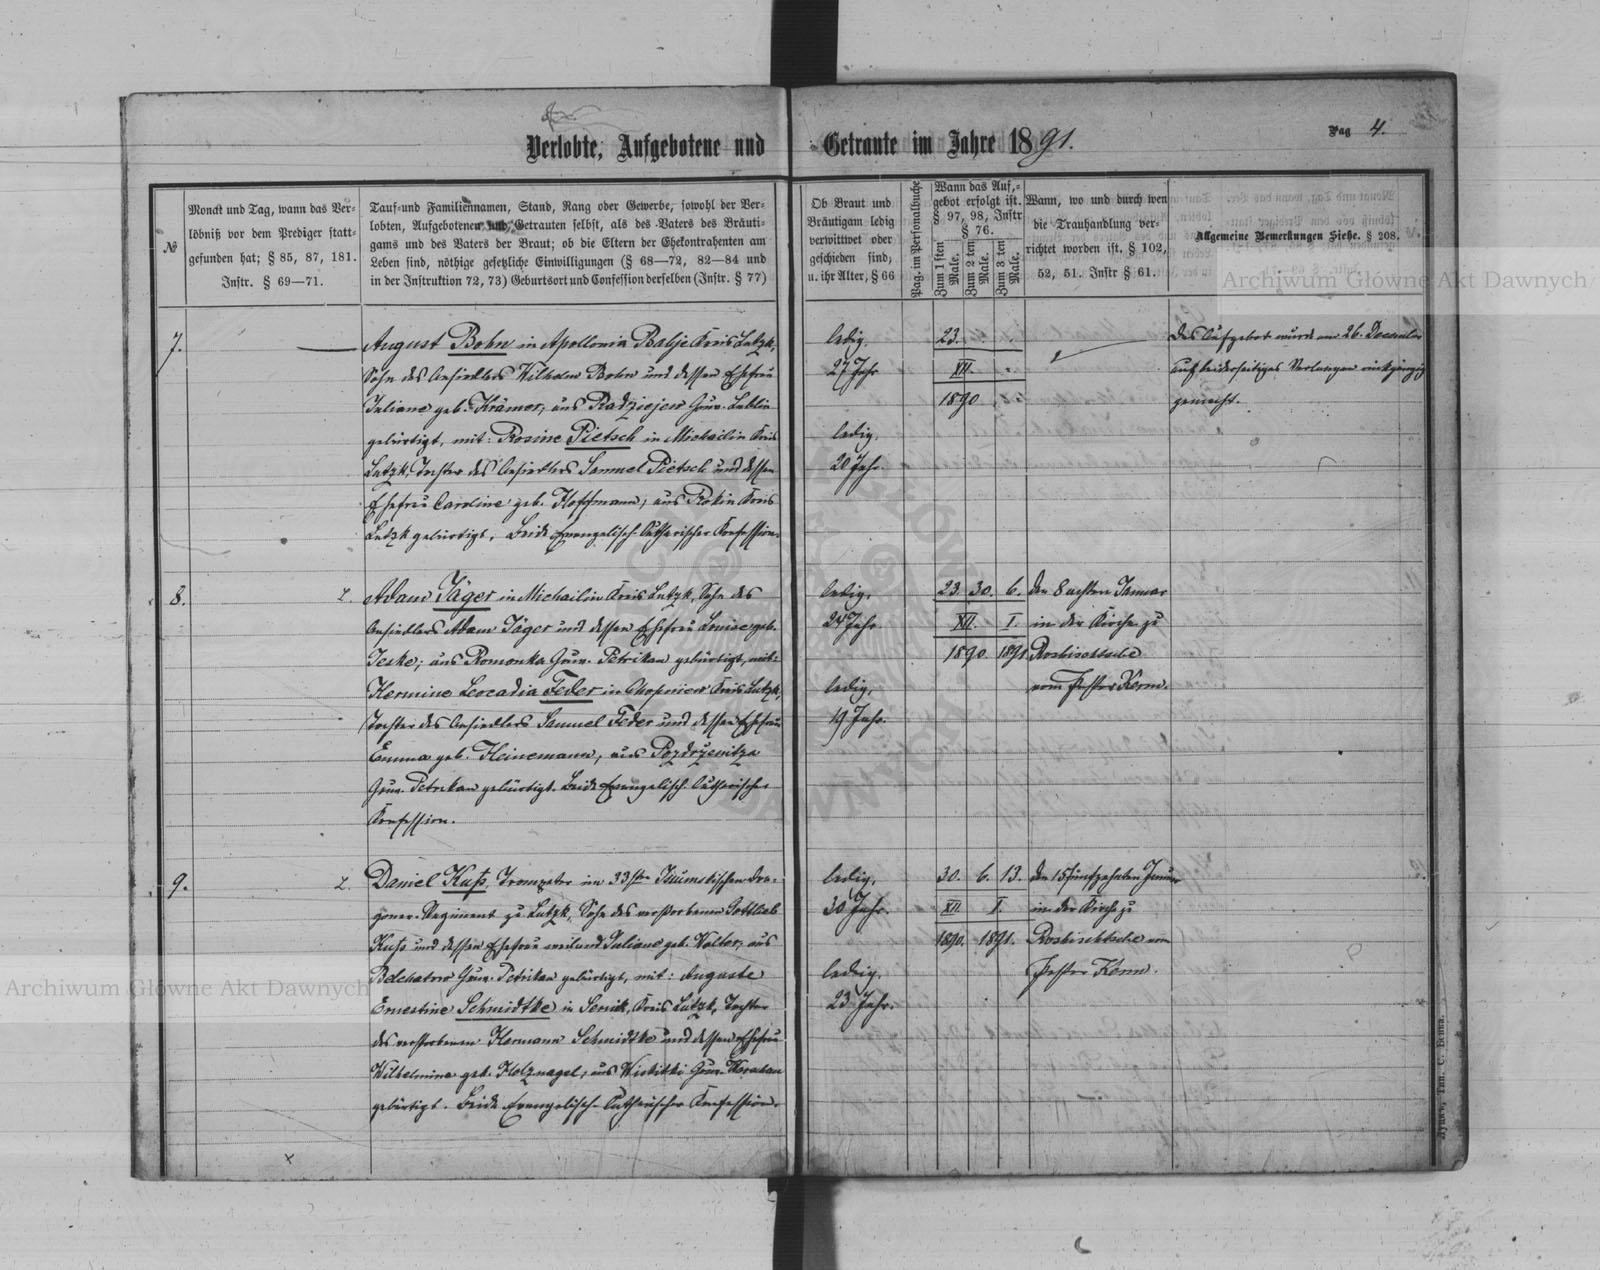 Verlobte, Aufgebotene und Getraute im Jahre 1891.
Pag 4.
№
Monat und Tag, wann das Ver-
löbniß vor dem Prediger statt-
gefunden hat; § 85, 87, 181.
Instr. § 69—71.
Tauf- und Familiennamen, Stand, Rang oder Gewerbe, sowohl der Ver-
lobten, Aufgebotenen und Getrauten selbst, als des Vaters des Bräuti-
gams und des Vaters der Braut; ob die Eltern der Ehekontrahenten am
Leben sind, nöthige gesetzliche Einwilligungen (§ 68—72, 82—84 und
in der Instruktion 72, 73) Geburtsort und Confession derselben (Instr. § 77)
Ob Braut und
Bräutigam ledig
verwittwet oder
geschieden sind,
u. ihr Alter, § 66
Pag. im Personalbuche
Wann das Auf-
gebot erfolgt ist.
§ 97, 98, Instr
§ 76.
Zum 1 sten Male.
Zum 2 ten Male.
Zum 3 ten Male.
Wann, wo und durch wen
die Trauhandlung ver-
richtet worden ist. § 102,
52, 51. Instr § 61.
Allgemeine Bemerkungen Siehe. § 208.
7.
August Bohn in Apollonia Balje Kreis Lutzk,
Sohn des Ansiedlers Wilhelm Bohn und dessen Ehefrau
Juliane geb. Krämer, aus Radziejew Gouv. Lublin
gebürtigt, mit: Rosine Pietsch in Michailin Kreis
Lutzk, Tochter des Ansiedlers Samuel Pietsch und dessen
Ehefrau Caroline geb. Hoffmann, aus Rokin Kreis
Lutzk gebürtigt. Beide Evangelisch-Lutherischer Konfession.
ledig.
27 Jahr
ledig.
20 Jahr.
23.
XII.
1890
Das Aufgebot wurde am 26. December
auf beiderseitiges Verlangen rückgängig
gemacht.
8.
Adam Jäger in Michailin Kreis Lutzk, Sohn des
Ansiedlers Adam Jäger und dessen Ehefrau Louise geb.
Jeske, aus Romonka Gouv. Petrikau gebürtigt, mit:
Hermine Leocadia Feder in Chopniew Kreis Lutzk,
Tochter des Ansiedlers Samuel Feder und dessen Ehefrau
Emma geb. Heinemann, aus Pozdrzenitza
Gouv. Petrikau gebürtigt. Beide Evangelisch-Lutherischer
Konfession.
ledig.
24 Jahr
ledig.
19 Jahr.
23. 30. 6.
XII. I.
1890. 1891
den 8 achten Januar
in der Kirche zu
Roshischtsche
vom Pastor Kerm.
9.
Daniel Kuß, Trompeter im 33sten Isumskischen Dra-
goner-Regiment zu Lutzk, Sohn des verstorbenen Gottlieb
Kuß und dessen Ehefrau weiland Juliane geb. Walter, aus
Belchatow Gouv. Petrikau gebürtigt, mit: Auguste
Ernestine Schmidtke in Serniki, Kreis Lutzk, Tochter
des verstorbenen Hermann Schmidtke und dessen Ehefrau
Wilhelmine geb. Holznagel, aus Wiskitki Gouv. Warschau
gebürtigt. Beide Evangelisch-Lutherischer Konfession.
ledig.
30 Jahr.
ledig.
23 Jahr.
30. 6. 13.
XII. I.
1890. 1891.
den 15 fünfzehnten Januar
in der Kirche zu
Roshischtsche vom
Pastor Kerm.
Archiwum Główne Akt Dawnych
Archiwum Główne Akt Dawnych